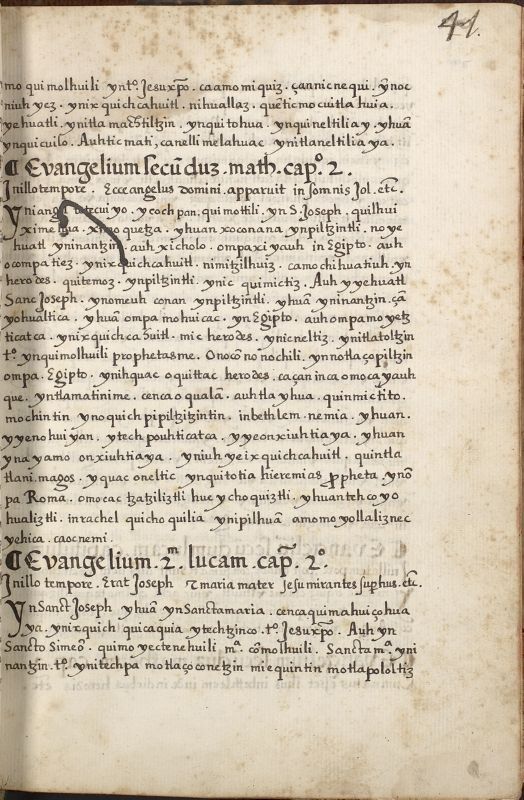 41.
mo qui molhuili ynto. Jesuxpo. ca amo miquiz. çannic nequi ynoc
niuh yez. ynixquichcahuitl. nihuallaz. quetic mocuitlahuia.
yehuatli. ynitla machtiltzin. ynquitohua. ynquineltilia y. yhuā
ynquicuilo. Auhticmati, canelli melahuac ynitlaneltilia ya.
¶ Evangelium secūduz. math. capo. 2.
Jnillotempore. Ecce angelus domini. apparuit in somnis Jos. etc.
Yniangel totecuiyo. ycochpan, quimottili. yn S. Joseph. quilhui
ximehua. ximoquetza. yhuan xoconana ynpiltzintli. noye
huatl yninantzin. auh xicholo. ompaxiyauh in Egipto. auh
ocompatiez. ynixquichcahuitl. nimitzilhuiz. camo chihuatiuh. yn
herodes. quitemoz. ynpiltzintli. ynic quimictiz. Auh yyehuatl
Sanc Joseph. ynomeuh conan ynpiltzintli. yhuā yninantzin. çā
yohualtica. yhuā ompa mohuicac. yn Egipto. auh ompa moyetz
ticatca. ynixquichcahuitl. mic herodes. ynicneltiz. ynitlatoltzin
to. ynquimolhuili prophetasme. Onocōnonochili. ynnotlaçopiltzin
ompa. Egipto. ynihquac oquittac herodes. caçan inca omocayauh
que. yntlamatinime. cenca oqualā. auhtla yhua. quinmictito.
mochintin ynoquich pipiltzitzintin. inbethlem. nemia. yhuan.
yyenohuiyan. ytech pouhticatca. yyeonxiuhtiaya. yhuan
ynayamo onxiuhtiaya. ynuih yeixquichcahuitl. quintla
tlani. magos. yquac oneltic ynquitotia hieremias propheta. ynō
pa Roma. omocac tzatziliztli hueychoquiztli. yhuantehcoyo
hualiztli. inrachel quichoquilia ynipilhuā amo moyollaliznec
yehica. caocnemi.
¶ Evangelium. 2m. lucam. cap. 2o.
Jnillo tempore. Erat Joseph &amp; maria mater Jesu mirantes superhus. etc.
Yn Sanct Joseph yhuā yn Sanctamaria. cencaquimahuiçohua
ya. ynixquich quicaquia ytechtzinco. to. Jesuxpo. Auh yn
Sancto Simeō. quimoyectenehuili ma. cōmolhuili. Sanctama. yni
nantzin. to. ynitechpa motlaçoconetzin miequintin motlapololtiz